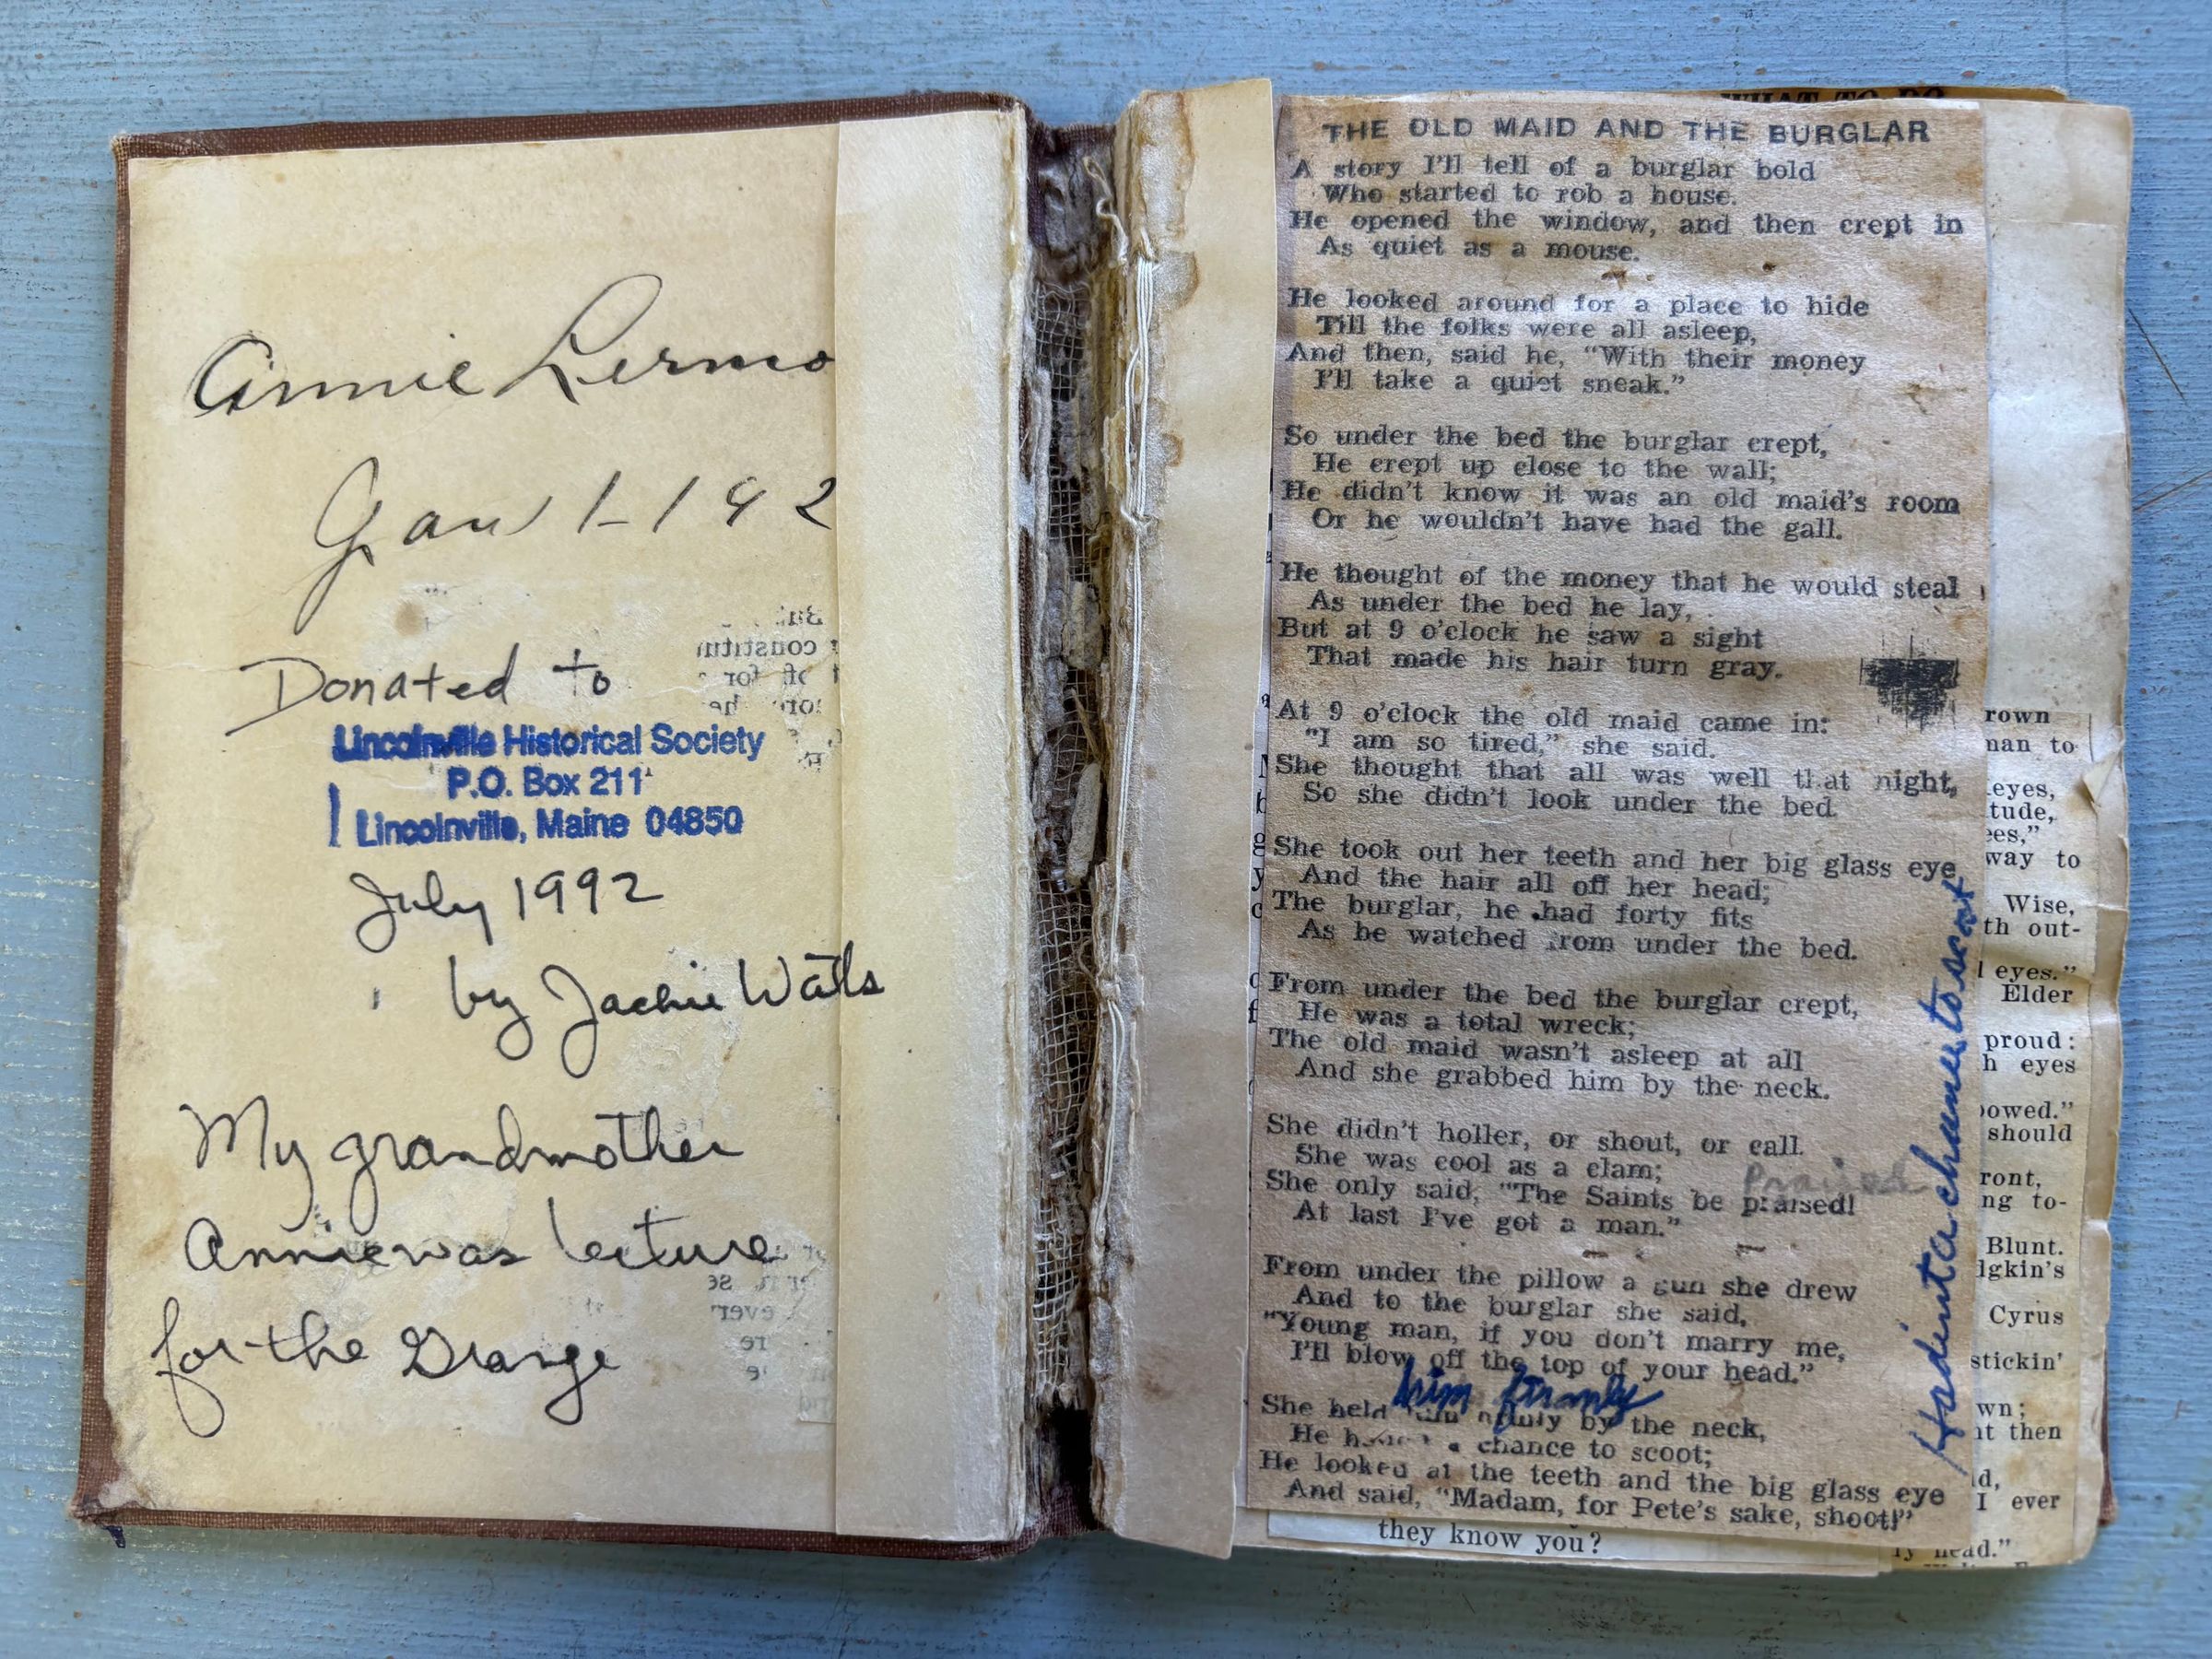 Annie Lermo
Jan 1-192
Donated to
Lincolnville Historical Society
P.O. Box 211
Lincolnville, Maine 04850
July 1992
by Jackie Watts
My grandmother
Annie was lecture
for the Grange
THE OLD MAID AND THE BURGLAR
A story I'll tell of a burglar bold
Who started to rob a house.
He opened the window, and then crept in
As quiet as a mouse.
He looked around for a place to hide
Till the folks were all asleep,
And then, said he, "With their money
I'll take a quiet sneak."
So under the bed the burglar crept,
He crept up close to the wall;
He didn't know it was an old maid's room
Or he wouldn't have had the gall.
He thought of the money that he would steal
As under the bed he lay,
But at 9 o'clock he saw a sight
That made his hair turn gray.
At 9 o'clock the old maid came in:
"I am so tired," she said.
She thought that all was well that night,
So she didn't look under the bed.
She took out her teeth and her big glass eye
And the hair all off her head;
The burglar, he had forty fits
As he watched from under the bed.
From under the bed the burglar crept,
He was a total wreck;
The old maid wasn't asleep at all
And she grabbed him by the neck.
She didn't holler, or shout, or call.
She was cool as a clam;
She only said, "The Saints be praised!
Praised
At last I've got a man."
From under the pillow a gun she drew
And to the burglar she said,
"Young man, if you don't marry me,
I'll blow off the top of your head."
him firmly
She held him firmly by the neck,
He hadn't a chance to scoot;
He looked at the teeth and the big glass eye
And said, "Madam, for Pete's sake, shoot!"
Hadn't a chance to scoot
they know you?
WHAT TO DO
rown
man to
eyes,
tude,
ees,"
way to
Wise,
th out-
eyes."
Elder
proud:
h eyes
bowed."
should
ront,
ng to-
Blunt.
dgkin's
Cyrus
stickin'
wn;
at then
I ever
head."